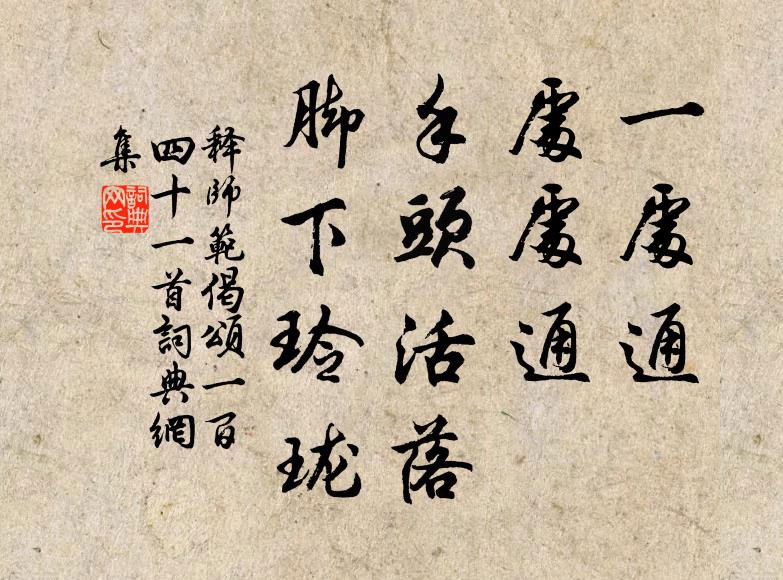 一處通
處處通
手頭活落
脚下玲珑
释師範偈頌一百
四十一首詞典網
集
詞典网印